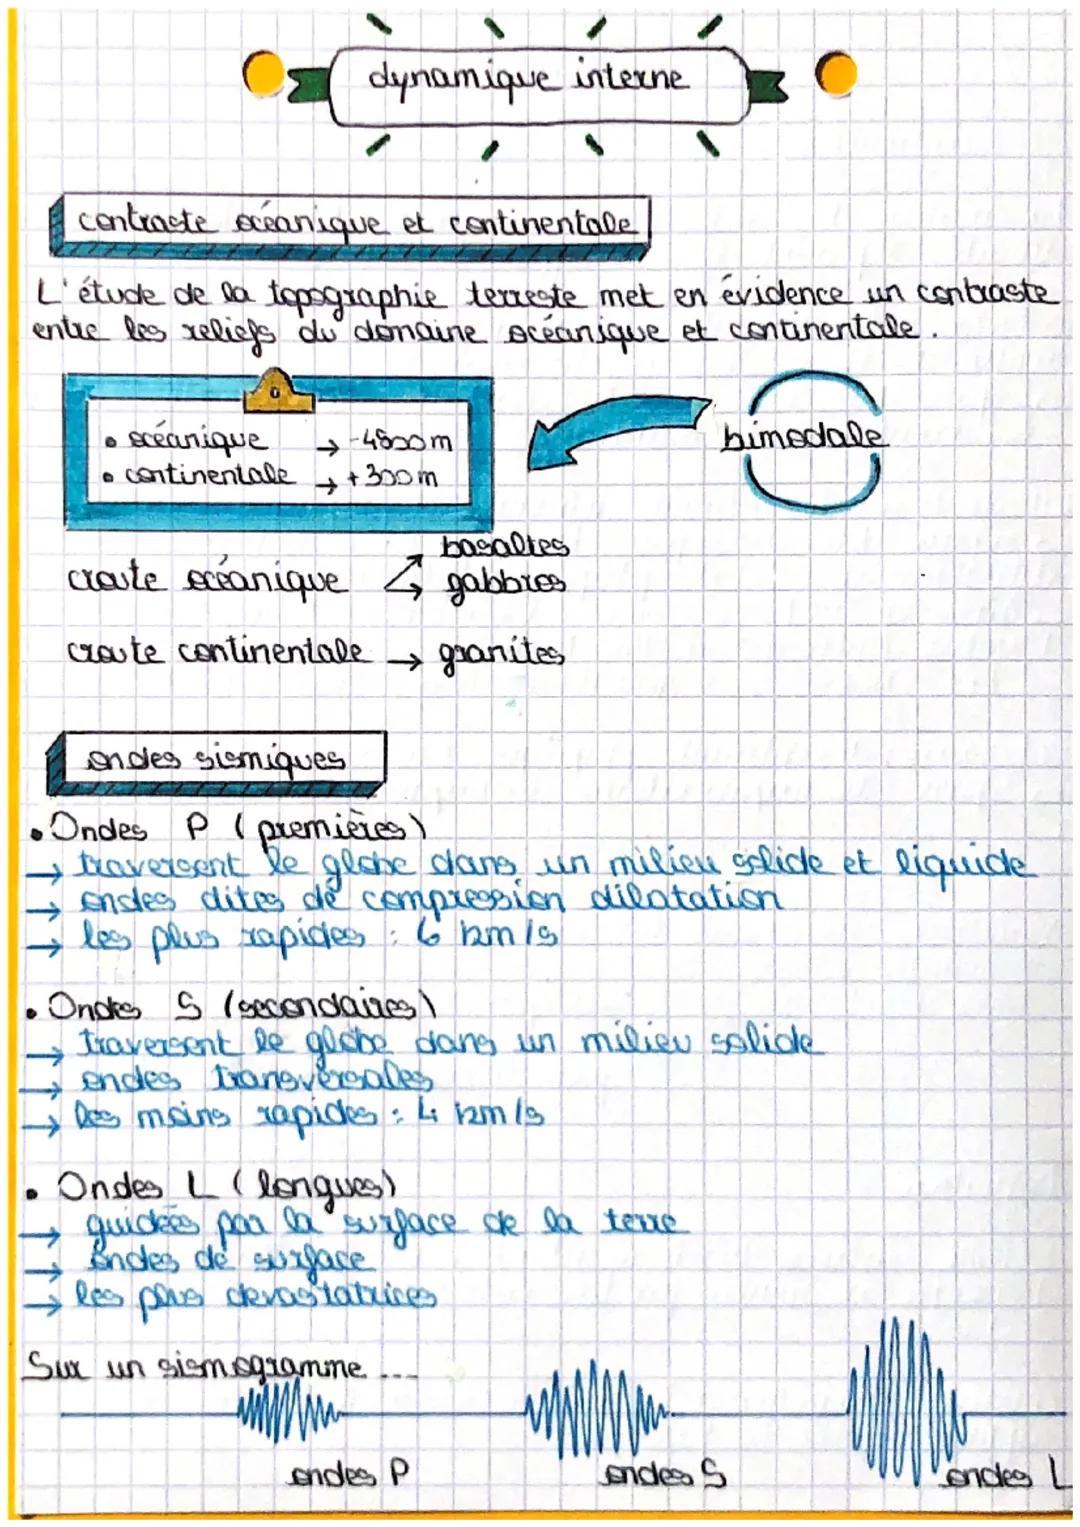 dynamique interne
contraste océanique et continentale
L'étude de la topographie terreste met en évidence un contraste
entre les reliefs du domaine océanique et continentale.
• océanique → -4800m
• continentale → +300m
bimodale
croute océanique → basaltes
→ gabbros
croute continentale → granites
ondes sismiques
• Ondes P (premières)
→ traversent le globe dans un milieu solide et liquide
→ ondes dites de compression dilatation
→ les plus rapides : 6 km/s
• Ondes S (secondaires)
→ traversent le globe dans un milieu solide
→ ondes transversales
→ les moins rapides : 4 km/s
• Ondes L (longues)
→ guidées par la surface de la terre
→ ondes de surface
→ les plus devastatrices
Sur un sismogramme ....
ondes P
ondes S
ondes L